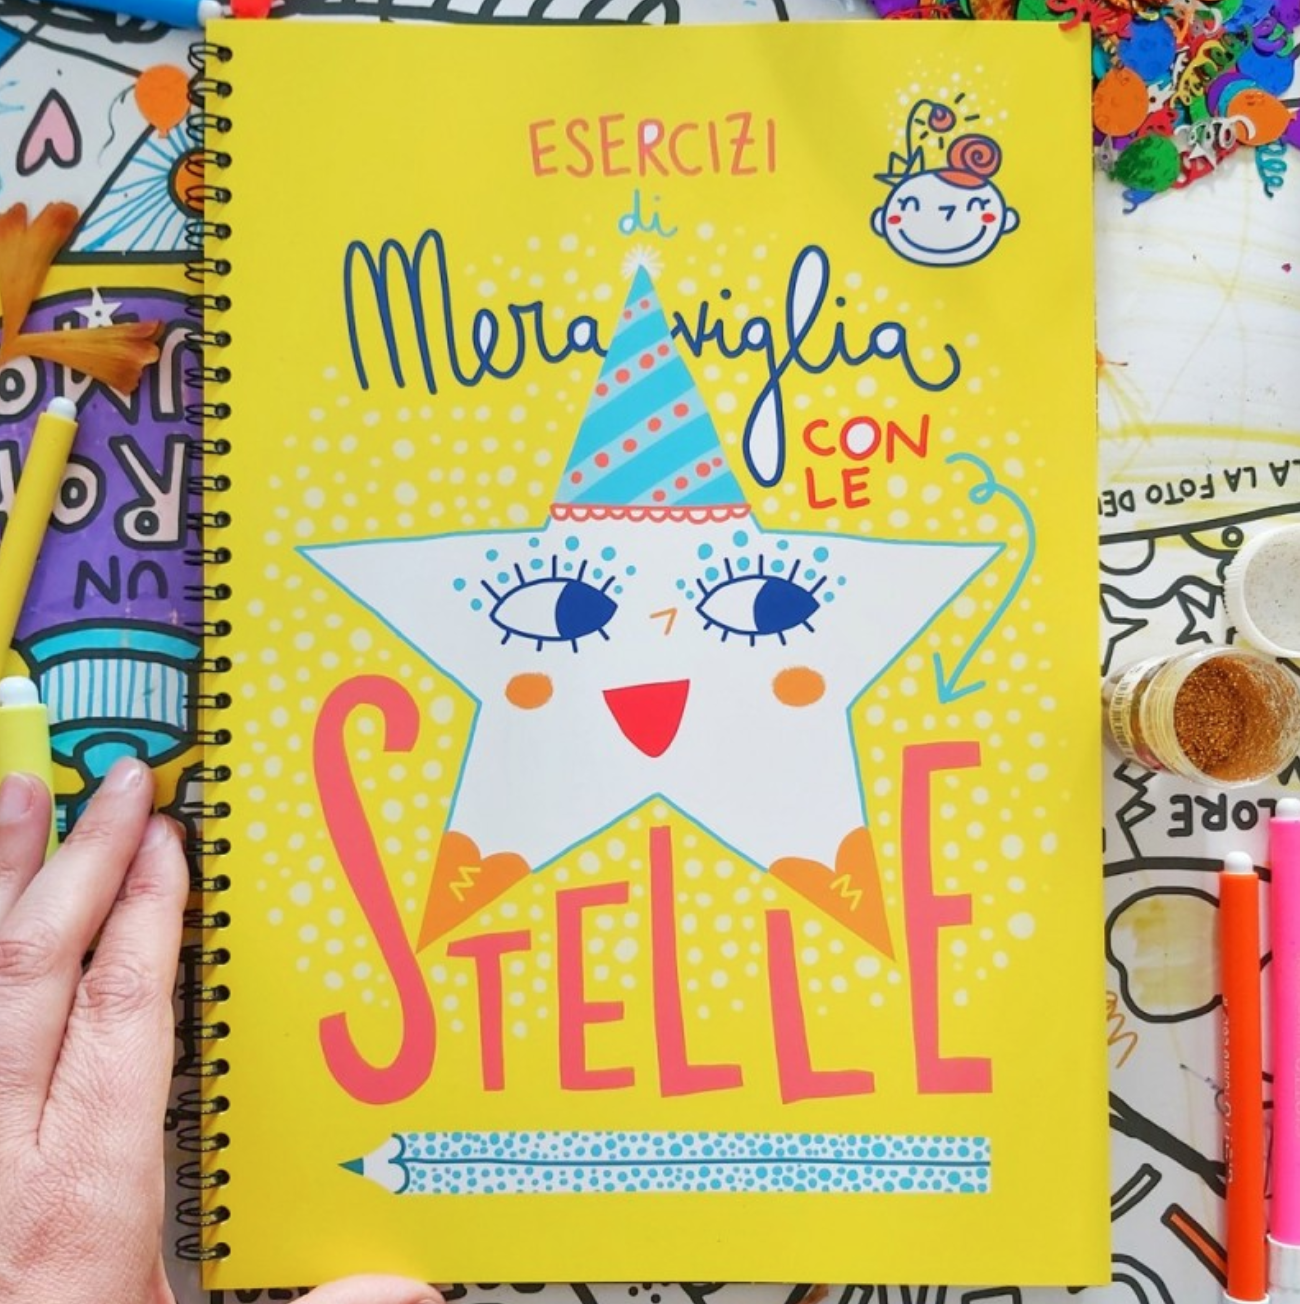 ESERCIZI
di
Meraviglia
CON
LE
STELLE
UN
A LA FOTO DEL
LORE